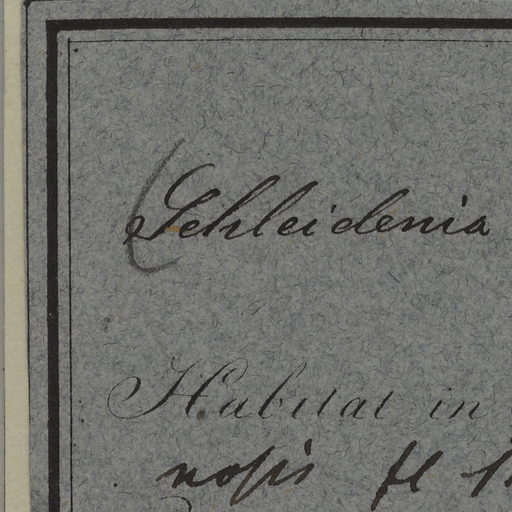 (Schleidenia
Habitat in
nosis fl